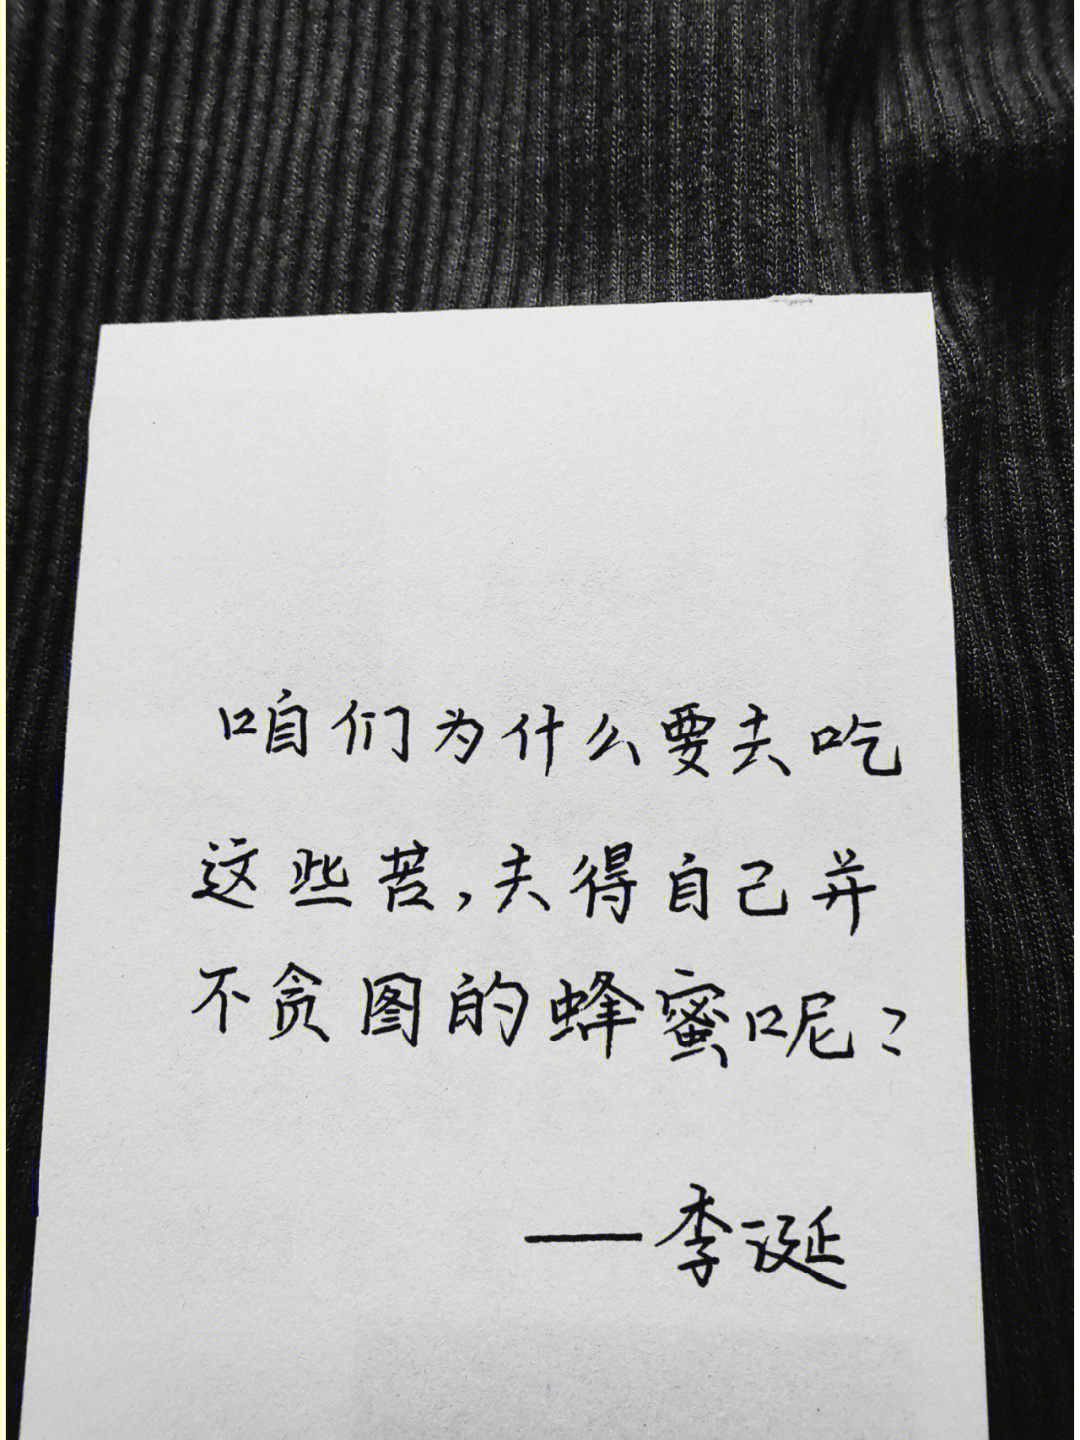 咱们为什么要去吃
这些苦,夫得自己并
不贪图的蜂蜜呢?
——李诞